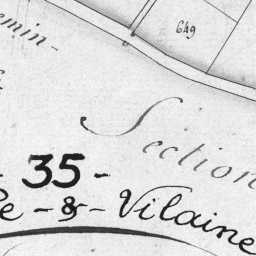 emin-
649
Section
- 35 -
le - & - Vilaine